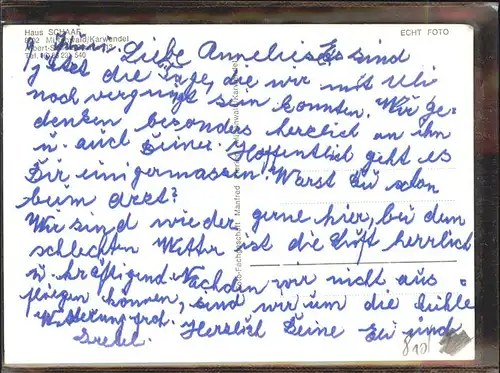 Haus SCHAAF
ECHT FOTO
Mittenwald/Karwendel
9. Juni. Liebe Annelies, Es sind
jetzt die Tage, die wir mit Uli
noch vergnügt sein konnten. Wir ge-
denken besonders herzlich an ihn
u. auch Deiner. Hoffentlich geht es
Dir einigermassen. Warst Du schon
beim Arzt?
Wir sind wieder gerne hier, bei dem
schlechten Wetter ist die Luft herrlich
u. kräftigend. Nachdem wir nicht aus-
fliegen können, sind wir um die kühle
Witterung froh. Herzlich Deine und
Gretel.
Manfred